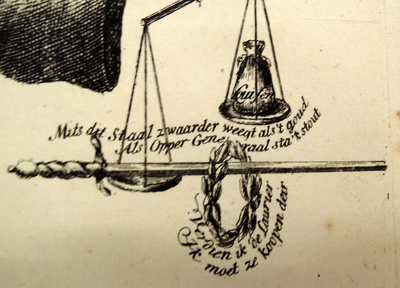 Guſen
Mits dit Staal zwaarder weegt als't goud
Als Opper Generaal sta't stout
Verdien ik de Laurier
Ik moet ze koopen deir